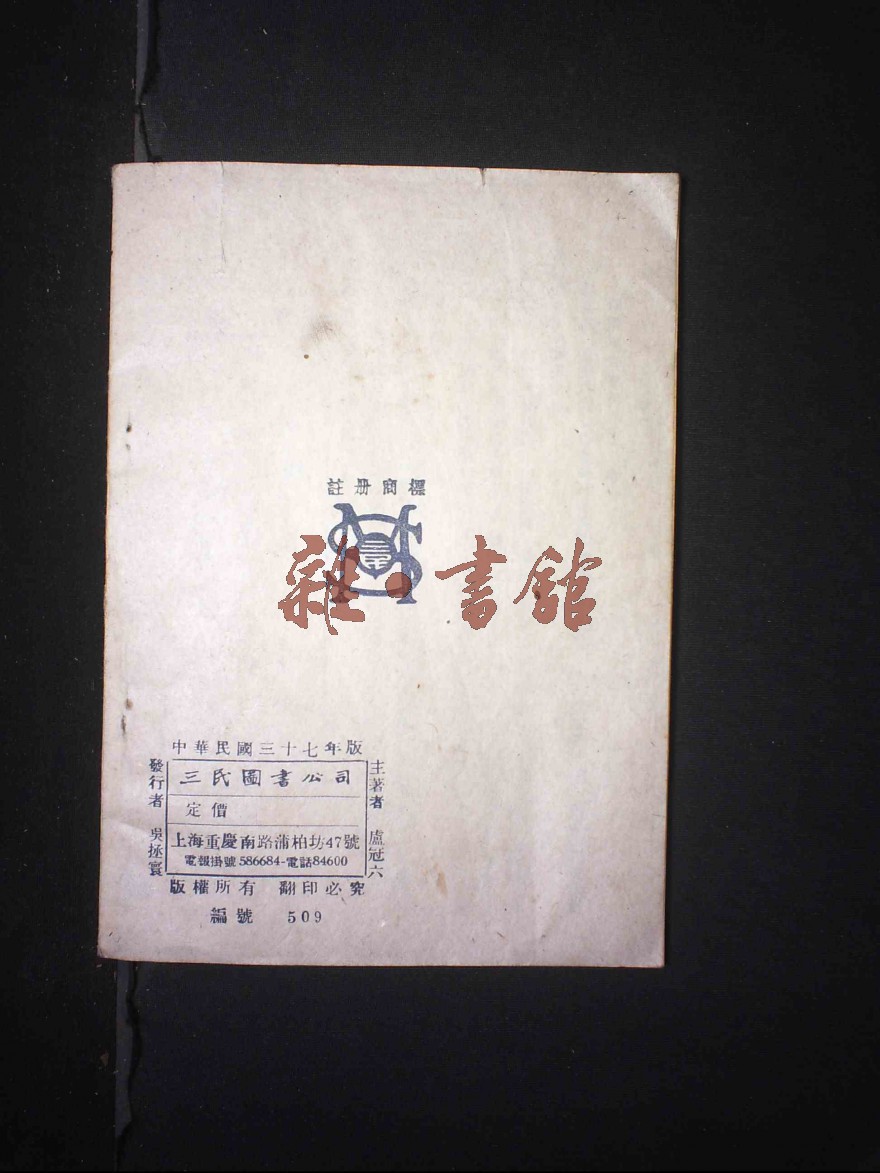 註册商標
雜·書館
中華民國三十七年版
主著者 盧冠六
三民圖書公司
定價
上海重慶南路蒲柏坊47號
電報掛號586684-電話84600
發行者 吳拯寰
版權所有 翻印必究
編號 509